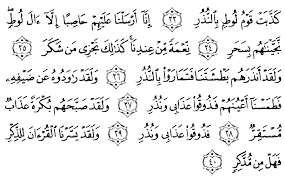 كَذَّبَتْ قَوْمُ لُوطٍۭ بِٱلنُّذُرِ ٣٣ إِنَّآ أَرْسَلْنَا عَلَيْهِمْ حَاصِبًا إِلَّآ ءَالَ لُوطٍ
نَّجَّيْنَٰهُم بِسَحَرٍ ٣٤ نِّعْمَةً مِّنْ عِندِنَا كَذَٰلِكَ نَجْزِى مَن شَكَرَ ٣٥
وَلَقَدْ أَنذَرَهُم بَطْشَتَنَا فَتَمَارَوْا۟ بِٱلنُّذُرِ ٣٦ وَلَقَدْ رَٰوَدُوهُ عَن ضَيْفِهِۦ
فَطَمَسْنَآ أَعْيُنَهُمْ فَذُوقُوا۟ عَذَابِى وَنُذُرِ ٣٧ وَلَقَدْ صَبَّحَهُم بُكْرَةً عَذَابٌ
مُّسْتَقِرٌّ ٣٨ فَذُوقُوا۟ عَذَابِى وَنُذُرِ ٣٩ وَلَقَدْ يَسَّرْنَا ٱلْقُرْءَانَ لِلذِّكْرِ
فَهَلْ مِن مُّدَّكِرٍ ٤٠